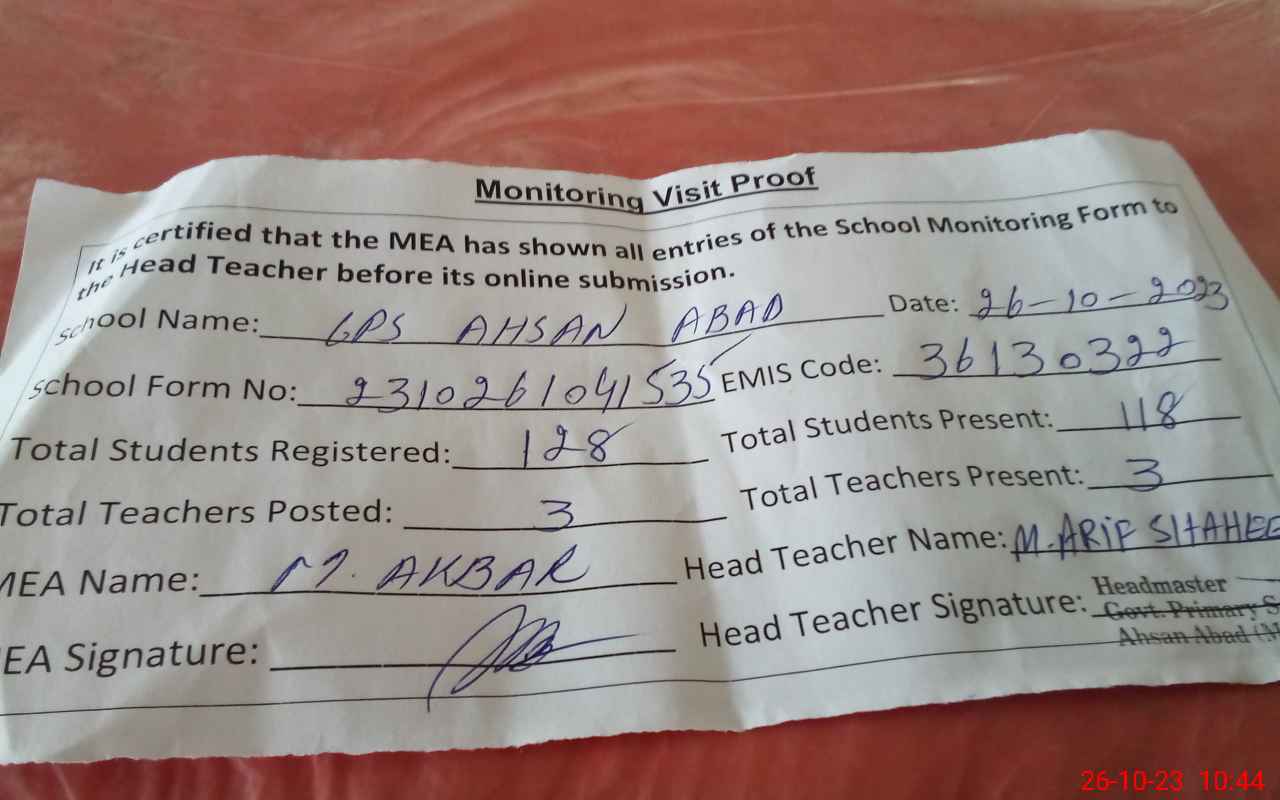 Monitoring Visit Proof
It is certified that the MEA has shown all entries of the School Monitoring Form to
the Head Teacher before its online submission.
School Name: GPS AHSAN ABAD Date: 26-10-2023
School Form No: 2310261041535 EMIS Code: 36130322
Total Students Registered: 128 Total Students Present: 118
Total Teachers Posted: 3 Total Teachers Present: 3
MEA Name: M. AKBAR Head Teacher Name: M. ARIF SHAHEE
EA Signature: Head Teacher Signature: Headmaster
Govt. Primary S
Ahsan Abad (M
26-10-23 10:44